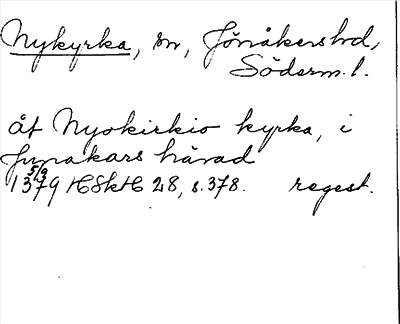 Nykyrka, sn, Jönåkers hd,
Söderm. l.
åt Nyokirkio kyrka, i
Junakars härad
5/3
1379 HSkH 28, s. 378. regest.